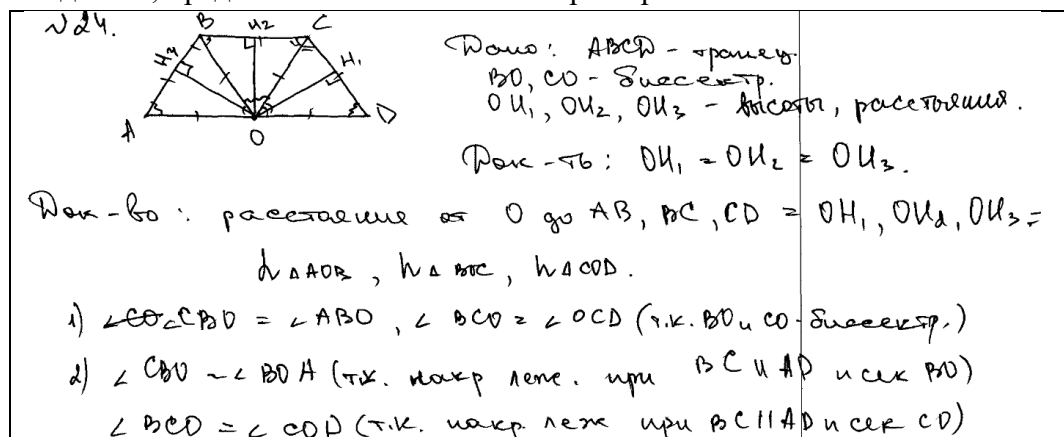 №24.
B H2 C
H3 H1
A O D
Дано: ABCD - трапец.
BO, CO - биссектр.
OH1, OH2, OH3 - высоты, расстояния.
Док-ть: OH1 = OH2 = OH3.
Док-во: расстояние от O до AB, BC, CD = OH1, OH2, OH3 =
h△AOB, h△BOC, h△COD.
1) ∠CBO = ∠ABO, ∠BCO = ∠OCD (т.к. BO и CO - биссектр.)
2) ∠CBO = ∠BOA (т.к. накр леж. при BC || AD и сек BO)
∠BCO = ∠COD (т.к. накр. леж при BC || AD и сек CO)